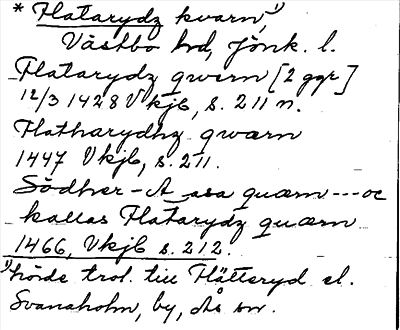 * Flatarydz kvarn, 1)
Västbo hd, Jönk. l.
Flatarydz qwern [2 ggr]
12/3 1428 Vkjb, s. 211 n.
Flatharydhz qwærn
1447 Vkjb, s. 211.
Södher-A asa quærn --- oc
kallas Flatarydz quærn
1466, Vkjb s. 212.
1) hörde trol. till Flätteryd el.
Svanaholm, by, Ås sn.